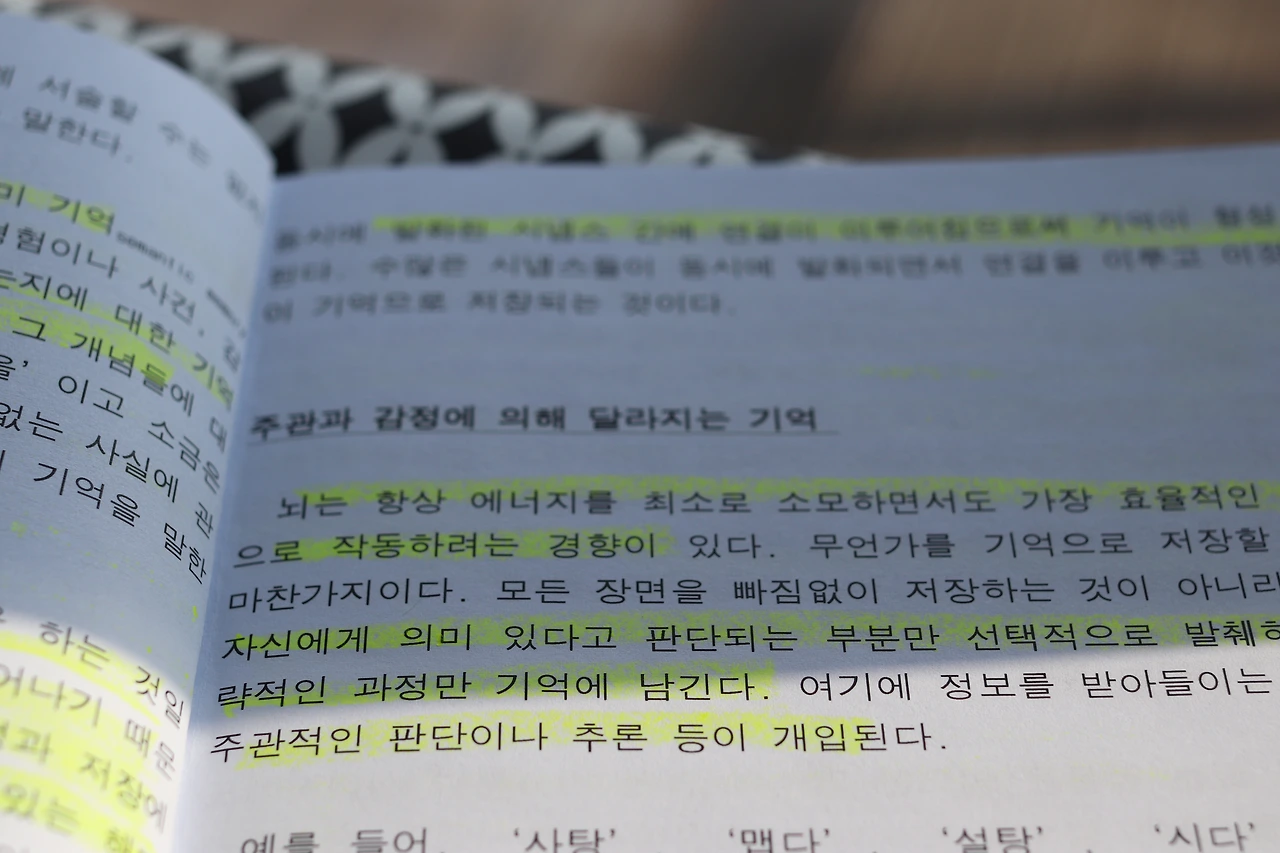 에 서술할 수는
말한다.
미 기억
경험이나 사건,
는지에 대한 기억
그 개념들에 대
을’ 이고 소금은
없는 사실에 관
기억을 말한
하는 것일
어나기 때문
과 저장에
있는
동시에 발화한 시냅스 간에 연결이 이루어짐으로써 기억이 형성
된다. 수많은 시냅스들이 동시에 발화되면서 연결을 이루고 이것
이 기억으로 저장되는 것이다.
주관과 감정에 의해 달라지는 기억
뇌는 항상 에너지를 최소로 소모하면서도 가장 효율적인
으로 작동하려는 경향이 있다. 무언가를 기억으로 저장할
마찬가지이다. 모든 장면을 빠짐없이 저장하는 것이 아니라
자신에게 의미 있다고 판단되는 부분만 선택적으로 발췌하
략적인 과정만 기억에 남긴다. 여기에 정보를 받아들이는
주관적인 판단이나 추론 등이 개입된다.
예를 들어, ‘사탕’, ‘맵다’, ‘설탕’, ‘시다’